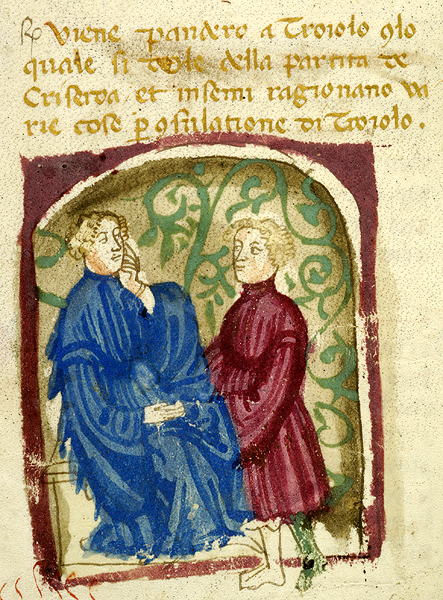 Viene pandero a Troiolo col
quale si dole della partita de
Criseida et insemi ragionano va
rie cose p consulatione di Troiolo.